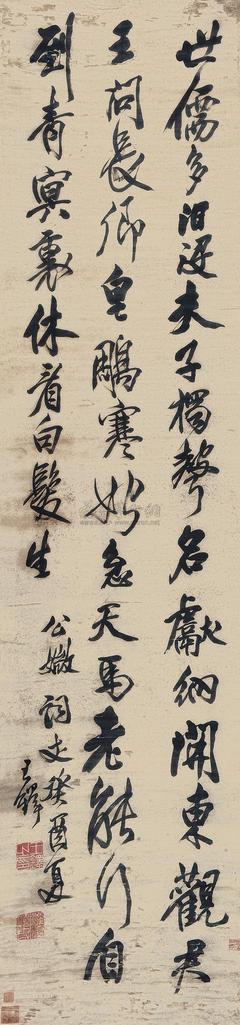 世儒多汩沒夫子獨聲名獻納開東觀君
王問長卿皂鵰寒始急天馬老能行自
到青冥裏休看白髮生
公詞丈癸酉夏
王鐸